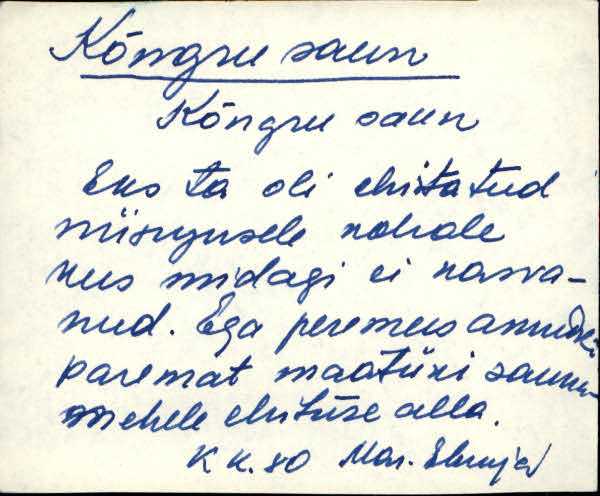 Kõngru saun
Kõngru saun
Eks ta oli ehitatud
niisugusele kohale
kus midagi ei kasva-
nud. Ega peremees annudki
paremat maatüki sauna-
mehele ehituse alla.
KK. 80 Mar.